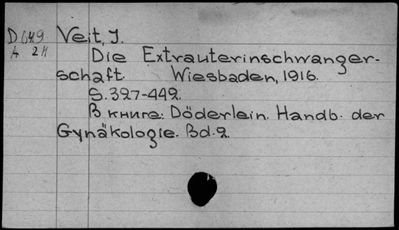 D 649 Veit, J.
Die Extrauterinschwanger-
schaft Wiesbaden, 1916.
S. 327-442.
В книге: Döderlein. Handb. der
Gynäkologie. Bd. 2.